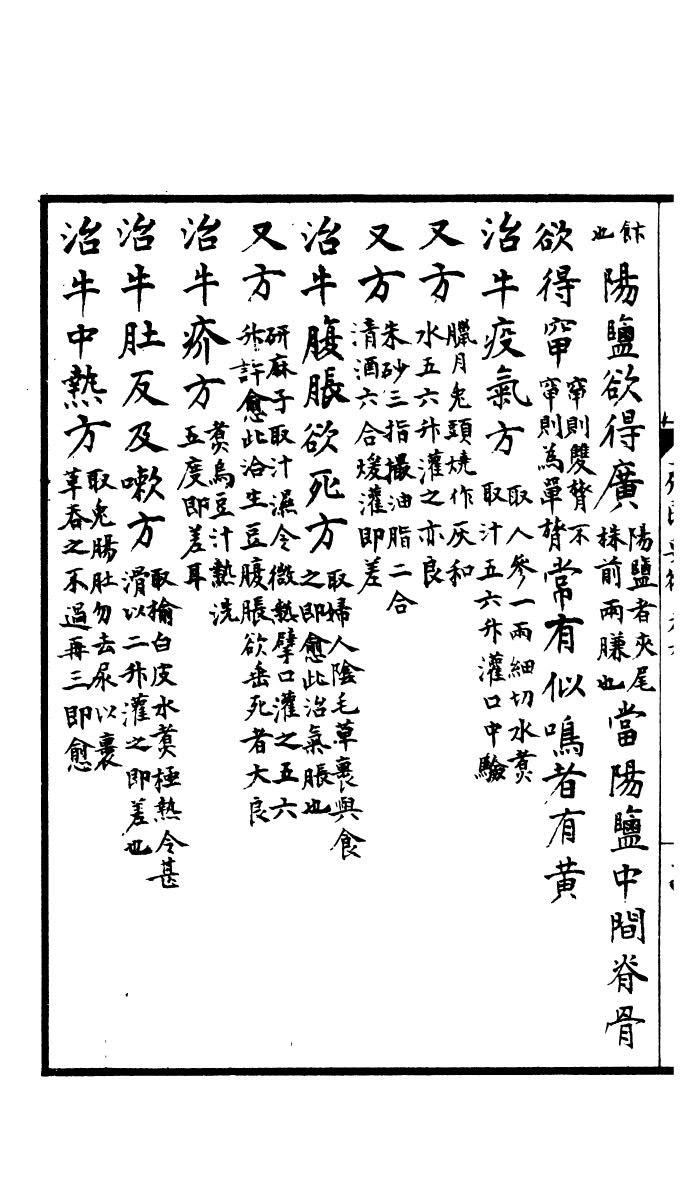 骭也陽鹽欲得廣陽鹽者夾尾株前兩膁也當陽鹽中間脊骨
欲得窜窜則雙膂不窜則為單膂常有似鳴者有黄
治牛疫氣方取人參一兩細切水煑取汁五六升灌口中驗
又方臘月兔頭燒作灰和水五六升灌之亦良
又方朱砂三指撮油脂二合清酒六合煖灌即差
治牛腹脹欲死方取婦人陰毛草裹與食之即愈此治氣脹也
又方研麻子取汁濕令微熱擘口灌之五六升許愈此治生豆腹脹欲垂死者大良
治牛疥方煑烏豆汁熱洗五度即差耳
治牛肚反及嗽方取榆白皮水煑極熱令甚滑以二升灌之即差也
治牛中熱方取兔腸肚勿去屎以裹草吞之不過再三即愈